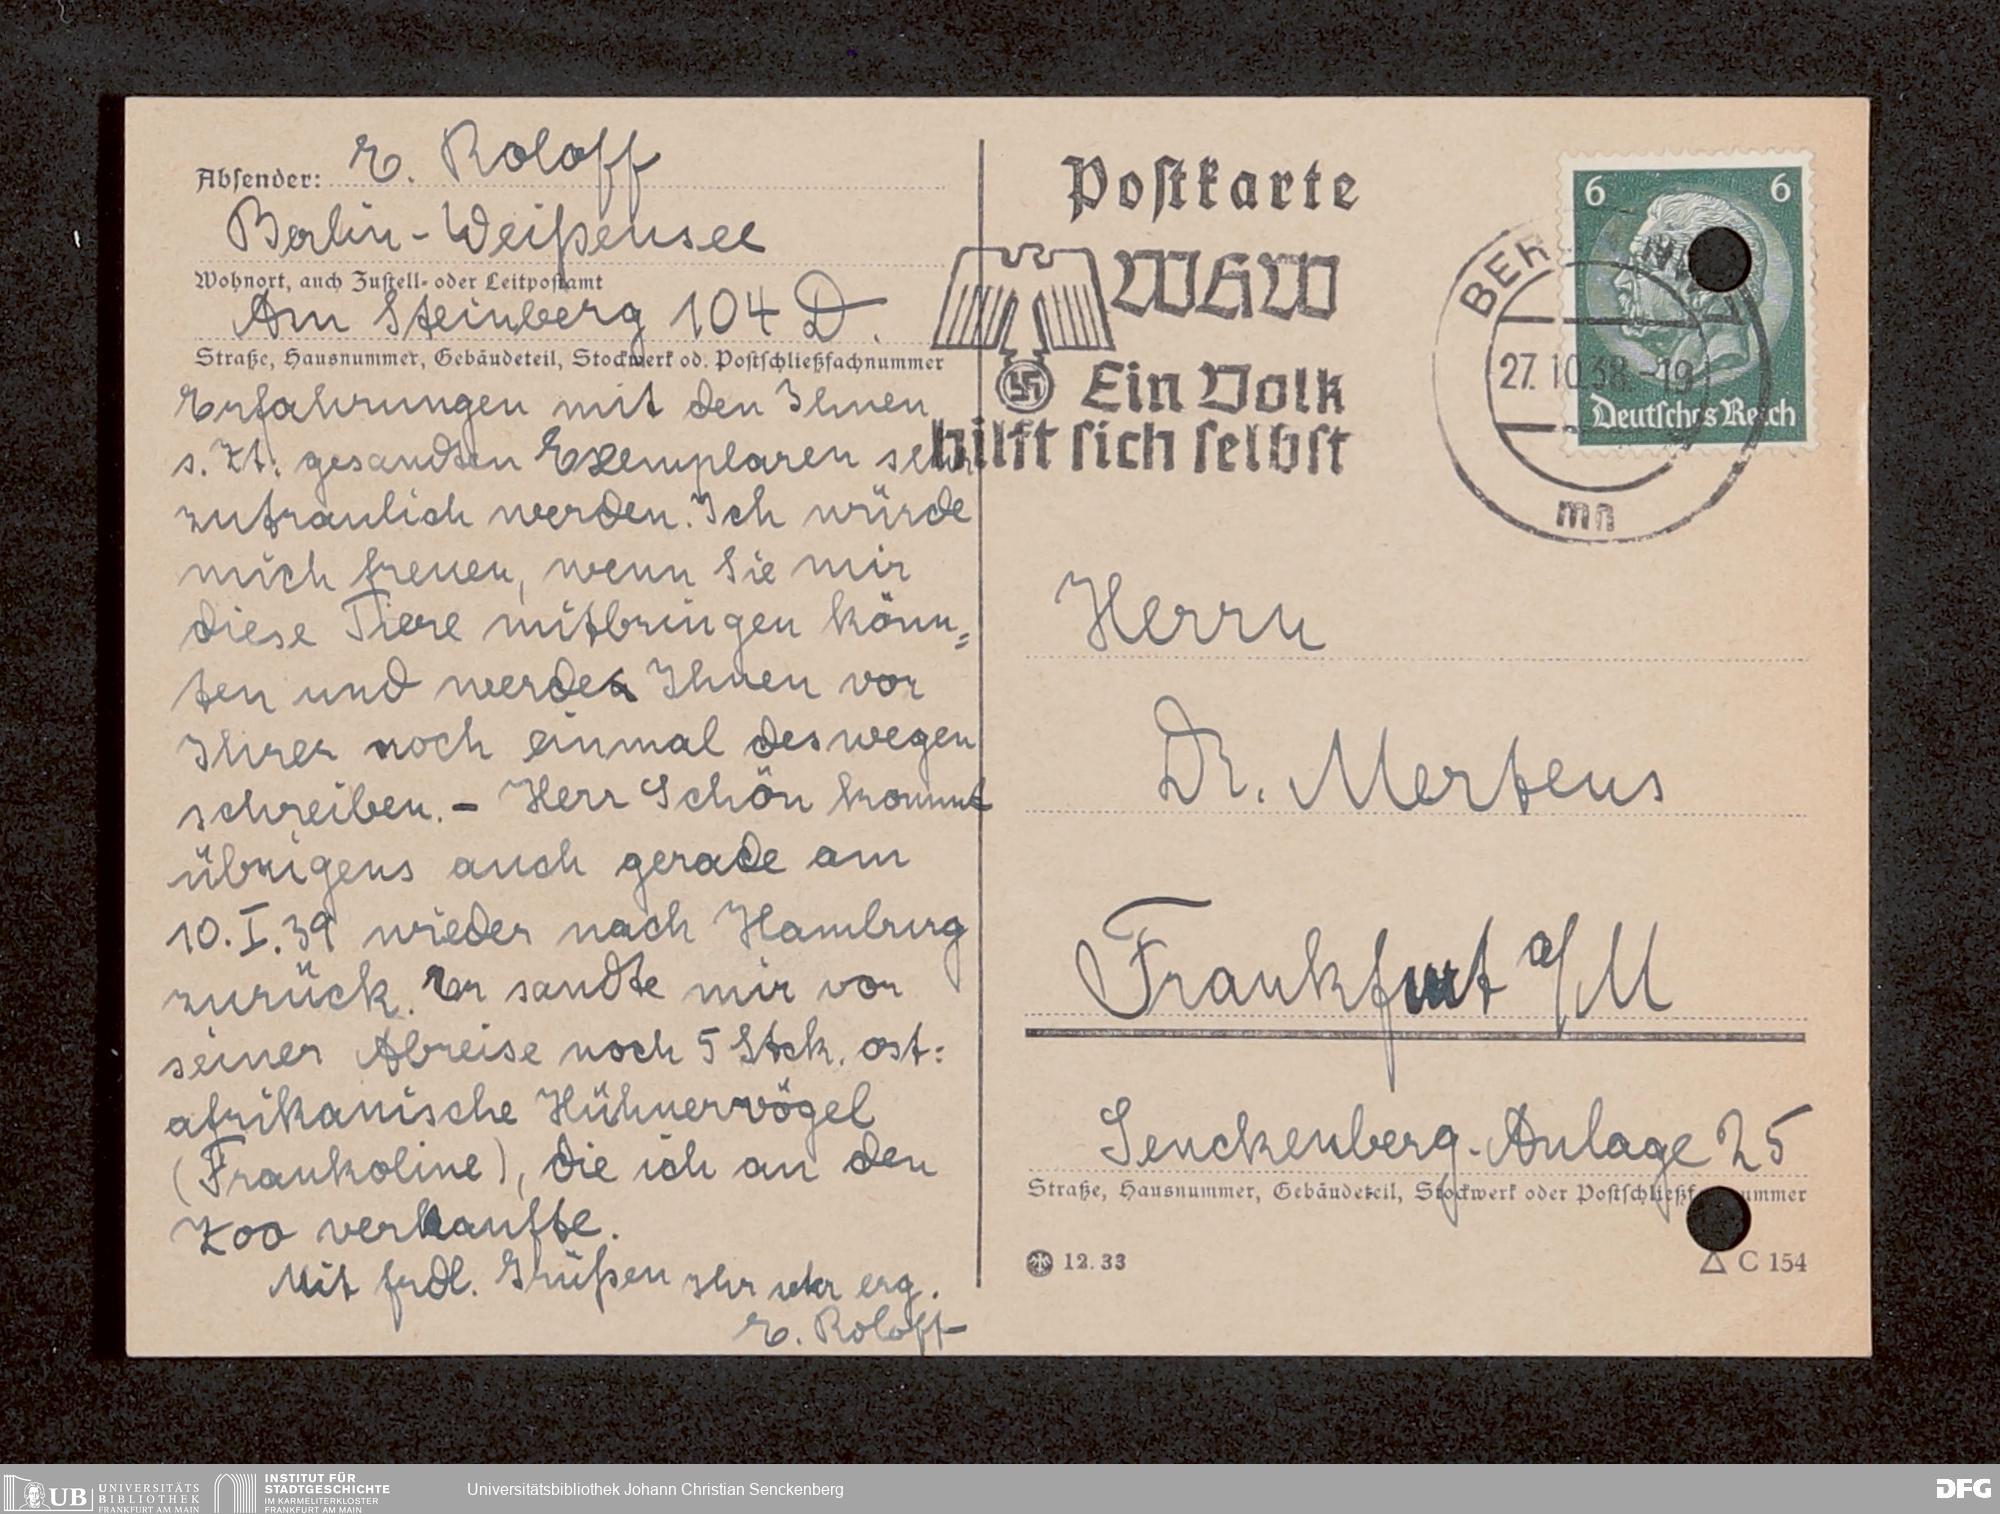 Absender: E. Roloff
Berlin-Weißensee
Wohnort, auch Zustell- oder Leitpostamt
Am Steinberg 104 D.
Straße, Hausnummer, Gebäudeteil, Stockwerk od. Postschließfachnummer
Erfahrungen mit den Ihnen
s. Zt. gesandten Exemplaren sehr
zutraulich werden. Ich würde
mich freuen, wenn Sie mir
diese Tiere mitbringen könn=
ten und werde Ihnen vor
Ihrer noch einmal deswegen
schreiben. – Herr Schön kommt
übrigens auch gerade am
10. I. 39 wieder nach Hamburg
zurück. Er sandte mir vor
seiner Abreise noch 5 Stck. ost=
afrikanische Hühnervögel
(Frankoline), die ich an den
Zoo verkaufte.
Mit frdl. Grüßen Ihr sehr erg.
E. Roloff
Postkarte
WHW
Ein Volk
hilft sich selbst
6 6
Deutsches Reich
BER
27.10.38.-19
mn
Herrn
Dr. Mertens
Frankfurt a/M
Senckenberg-Anlage 25
Straße, Hausnummer, Gebäudeteil, Stockwerk oder Postschließfachnummer
12. 33
C 154
UB UNIVERSITÄTS
BIBLIOTHEK
FRANKFURT AM MAIN
INSTITUT FÜR
STADTGESCHICHTE
IM KARMELITERKLOSTER
FRANKFURT AM MAIN
Universitätsbibliothek Johann Christian Senckenberg
DFG